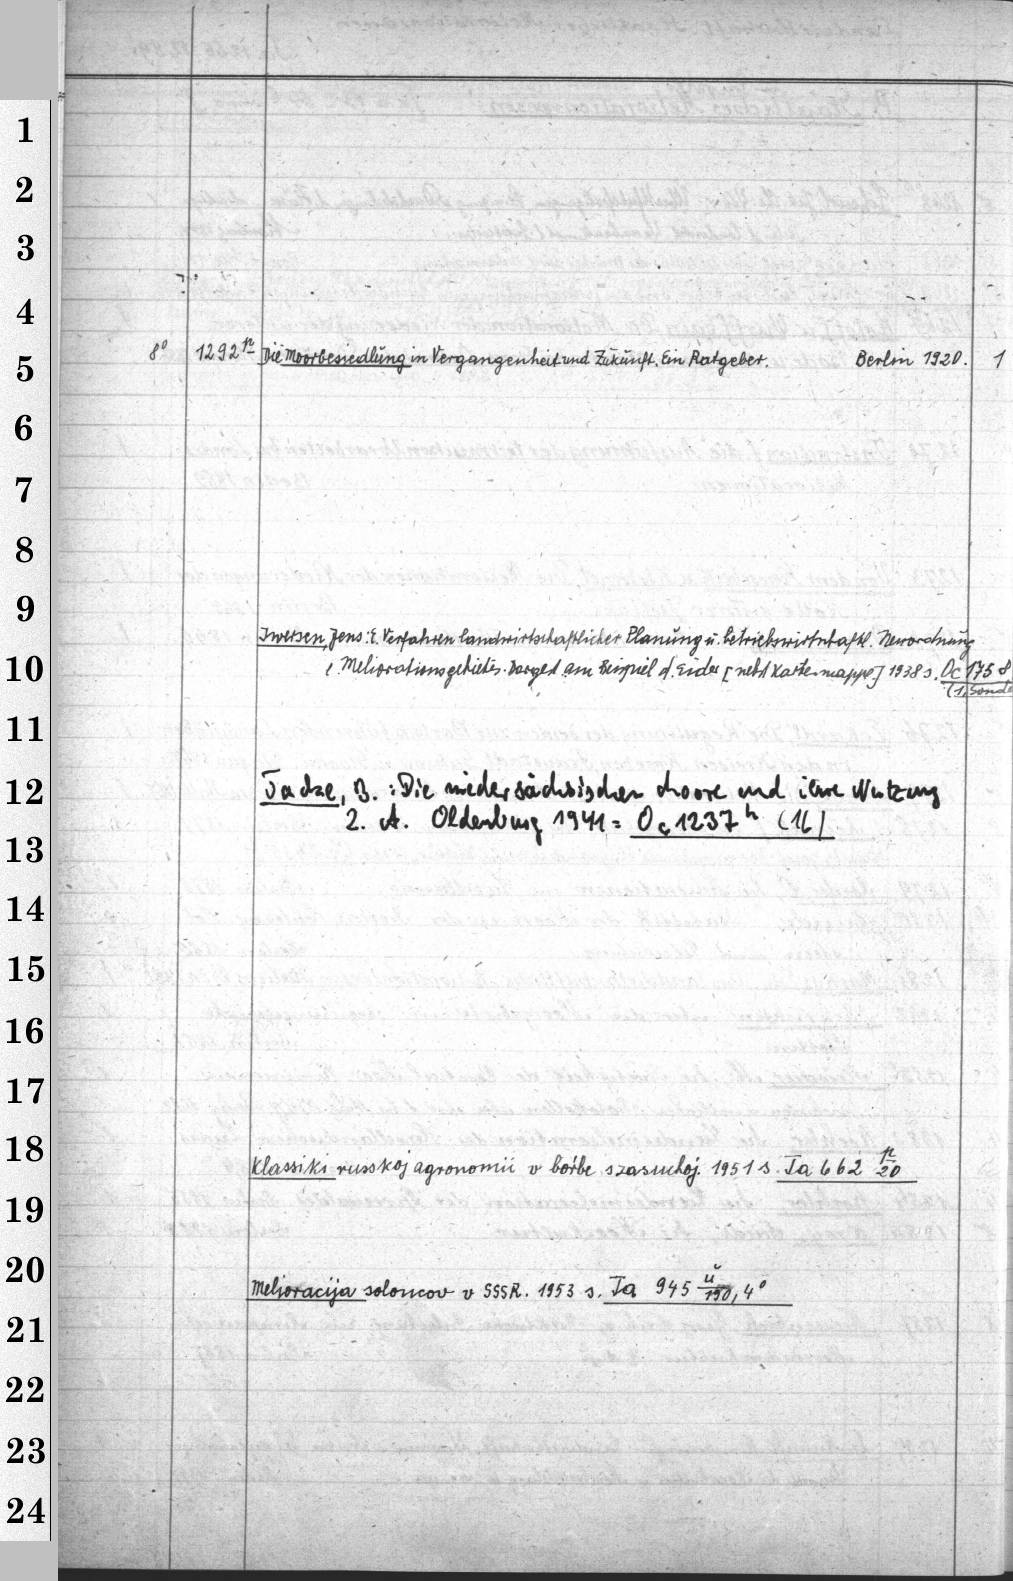 1
2
3
4
5
6
7
8
9
10
11
12
13
14
15
16
17
18
19
20
21
22
23
24
8° 1292 n Die Moorbesiedlung in Vergangenheit und Zukunft. Ein Ratgeber. Berlin 1920. 1
Iwersen, Jens: E. Verfahren landwirtschaftlicher Planung u. betriebswirtschaftl. Neuordnung
e. Meliorationsgebietes. Darges. am Beispiel d. Eider [nebst Kartenmappe] 1938 s. Oc 1758
(1. Sonde
Tacke, B.: Die niedersächsischen Moore und ihre Nutzung
2. A. Oldenburg 1941 = Oc 1237 h (16)
Klassiki russkoj agronomii v bor'be s zasuchoj. 1951 s. Ta 662 n/20
Melioracija soloncov v SSSR. 1953 s. Ta 945 u/190, 4°